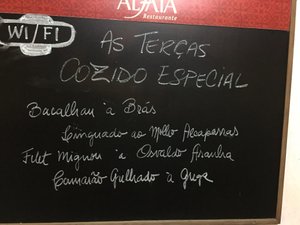 ALSÁCIA
Restaurante
WI/FI
AS TERÇAS
COZIDO ESPECIAL
Bacalhau à Brás
Linguado ao Molho Alcaparras
Filet Mignon à Osvaldo Aranha
Camarão Grelhado à Grega